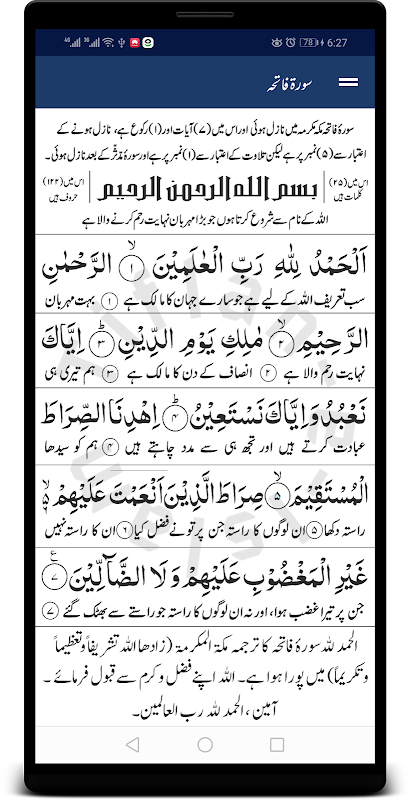 4G 3G 78 6:27
سورۃ فاتحہ
سورۂ فاتحہ مکہ مکرمہ میں نازل ہوئی اور اس میں (۷) آیات اور (۱) رکوع ہے، نازل ہونے کے
اعتبار سے (۵) نمبر پر ہے لیکن تلاوت کے اعتبار سے (۱) نمبر پر ہے اور سورۂ مدّثر کے بعد نازل ہوئی۔
اس میں (۲۵) کلمات ہیں
بسم الله الرحمن الرحيم
اس میں (۱۲۲) حروف ہیں
اللہ کے نام سے شروع کرتا ہوں جو بڑا مہربان نہایت رحم کرنے والا ہے
اَلْحَمْدُ لِلّٰهِ رَبِّ الْعٰلَمِيْنَ ۙ۝۱ الرَّحْمٰنِ
سب تعریف اللہ کے لیے ہے جو سارے جہان کا مالک ہے ۝۱ بہت مہربان
الرَّحِيْمِ ۙ۝۲ مٰلِكِ يَوْمِ الدِّيْنِ ؕ۝۳ اِيَّاكَ
نہایت رحم والا ہے ۝۲ انصاف کے دن کا مالک ہے ۝۳ ہم تیری ہی
نَعْبُدُ وَ اِيَّاكَ نَسْتَعِيْنُ ؕ۝۴ اِهْدِنَا الصِّرَاطَ
عبادت کرتے ہیں اور تجھ ہی سے مدد چاہتے ہیں ۝۴ ہم کو سیدھا
الْمُسْتَقِيْمَ ۙ۝۵ صِرَاطَ الَّذِيْنَ اَنْعَمْتَ عَلَيْهِمْ ۙ۬۝
راستہ دکھا ۝۵ ان لوگوں کا راستہ جن پر تو نے فضل کیا ۝۶ ان کا راستہ نہیں
غَيْرِ الْمَغْضُوْبِ عَلَيْهِمْ وَ لَا الضَّآلِّيْنَ ۠۝۷
جن پر تیرا غضب ہوا، اور نہ ان لوگوں کا راستہ جو راستے سے بھٹک گئے ۝۷
الحمد للہ سورۂ فاتحہ کا ترجمہ مکۃ المکرمۃ (زادھا اللہ تشریفاً و تعظیماً
و تکریماً) میں پورا ہوا ہے۔ اللہ اپنے فضل و کرم سے قبول فرمائے۔
آمین، الحمد للہ رب العالمین۔